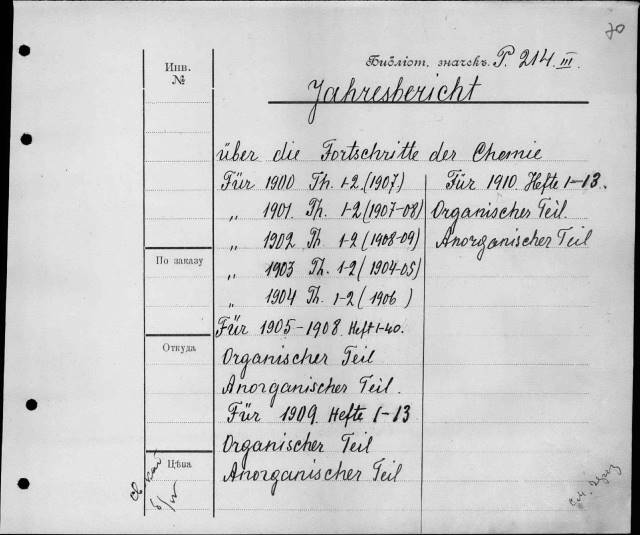 70
Инв.
№
Библіот. значекъ. P. 214 III.
Jahresbericht
über die Fortschritte der Chemie
Für 1900 Th. 1-2. (1907.)
„ 1901 Th. 1-2 (1907-08)
„ 1902 Th. 1-2 (1908-09)
„ 1903 Th. 1-2 (1904-05)
„ 1904 Th. 1-2 (1906)
Für 1905-1908. Heft 1-40.
Organischer Teil
Anorganischer Teil.
Für 1909. Hefte 1-13
Organischer Teil
Anorganischer Teil
Für 1910. Hefte 1-13.
Organischer Teil.
Anorganischer Teil
По заказу
Откуда
Цѣна